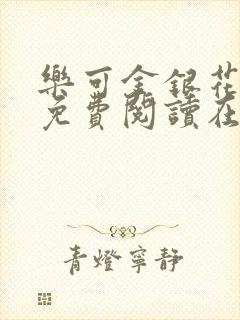 樂可金銀花
免費閱讀在
青燈寧靜